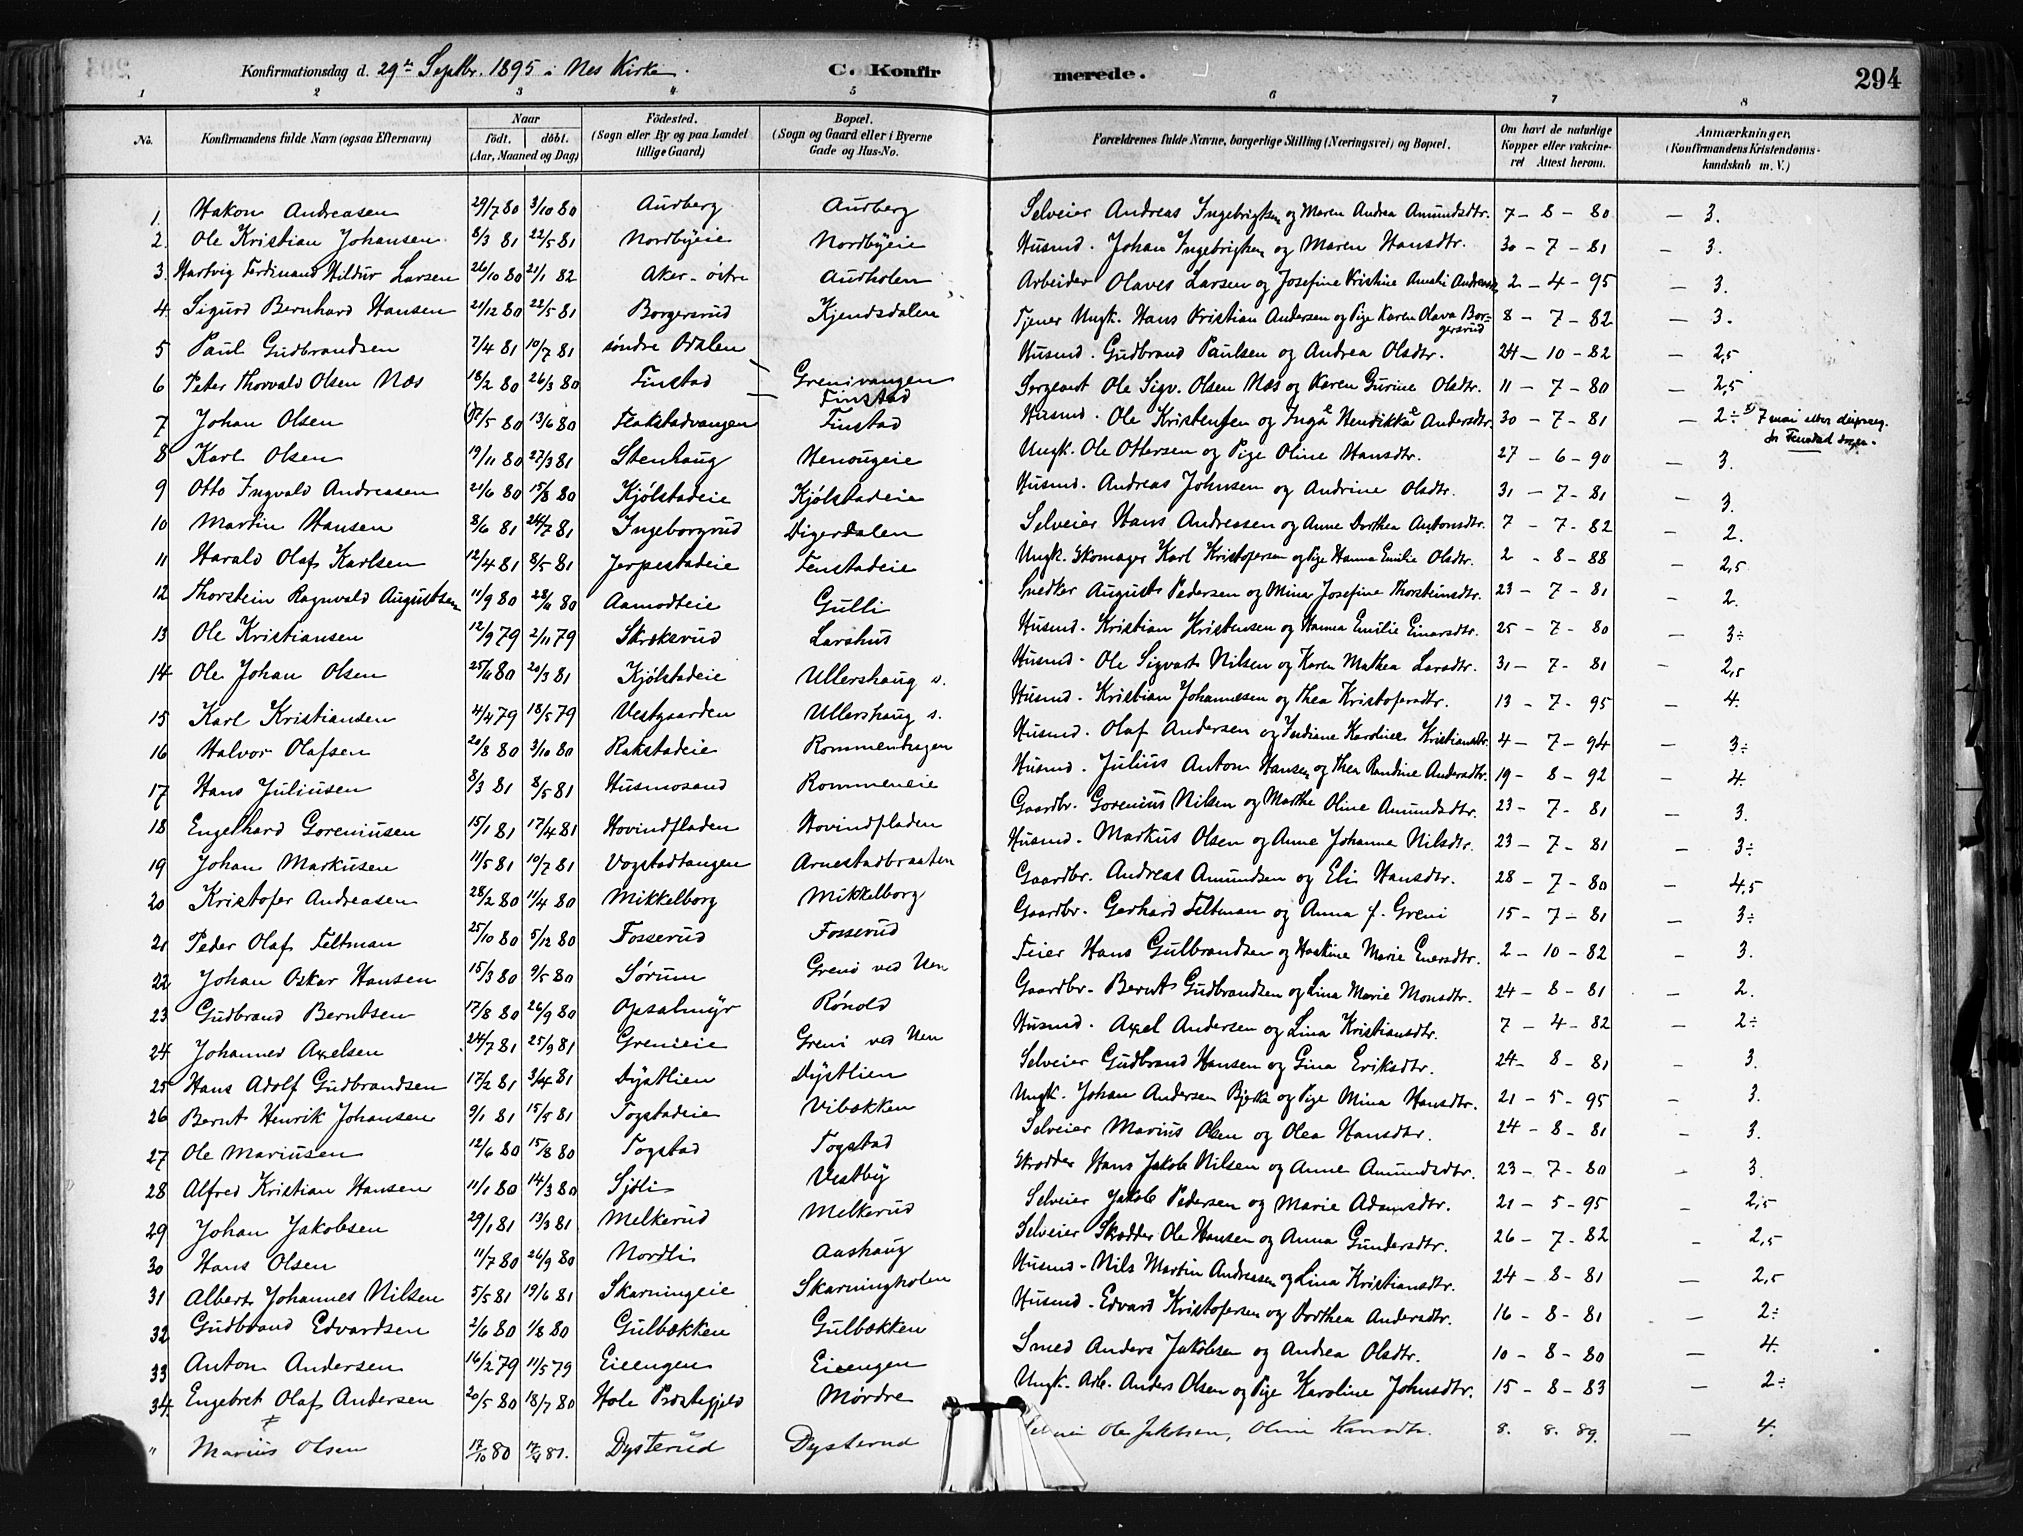 Konfirmationsdag d. 29de Septbr. 1895 i Nes Kirke. C. Konfirmerede. 294
1 2 3 4 5 6 7 8
No. Konfirmandens fulde Navn (ogsaa Efternavn) Naar födt. döbt. (Aar, Maaned og Dag) Födested. (Sogn eller By og paa Landet tillige Gaard) Bopæl. (Sogn og Gaard eller i Byerne Gade og Hus-No. Forældrenes fulde Navne, borgerlige Stilling (Næringsvei) og Bopæl. Om havt de naturlige Kopper eller vakcineret Attest herom. Anmærkninger. (Konfirmandens Kristendomskundskab m. V.)
1. Hakon Andreasen 29/7 80 3/10 80 Audberg Audberg Selveier Andreas Ingebrigtsen og Maren Andrea Amundsdtr. 7 - 8 - 80 — 3.
2. Ole Kristian Johansen 8/3 81 22/5 81 Nordbyeie Nordbyeie Husmd. Johan Ingebrigtsen og Maren Hansdtr. 30 - 7 - 81 — 3.
3. Hartvig Ferdinand Hildur Larsen 26/10 80 21/1 82 Aker - östre Audholen Arbeider Olaves Larsen og Josefine Kristine Amalie Andersen 2 - 4 - 95 — 3.
4. Sigurd Bernhard Hansen 21/12 80 22/5 81 Borgersrud Kjendsdalen Tjener Ungk. Hans Kristian Andersen og Pige Karen Olava Borgersrud 8 - 7 - 82 — 3.
5 Paul Gudbrandsen 7/4 81 10/7 81 söndre Odalen Husmd. Gudbrand Paulsen og Andrea Olsdtr. 24 - 10 - 82 — 2,5
6 Peter Thorvald Olsen Næs 18/2 80 26/3 80 Finstad Grenivangen Finstad Sergeant Ole Sigv. Olsen Næs og Karen Gurine Olsdtr. 11 - 7 - 80 — 2,5
7 Johan Olsen 17/5 80 13/6 80 Flakstadvangen Finstad Husmd. Ole Kristensen og Inga Hendikka Andersdtr. 30 - 7 - 81 — 2÷ 7 mai efter
8 Karl Olsen 19/11 80 27/3 81 Stenhaug Henougeie Ungk. Ole Ottersen og Pige Oline Hansdtr. 27 - 6 - 90 — 3.
9 Otto Ingvald Andreasen 21/6 80 15/8 80 Kjölstadeie Kjölstadeie Husmd. Andreas Johnsen og Andrine Olsdtr. 31 - 7 - 81 — 3.
10 Martin Hansen 8/6 81 24/7 81 Ingeborgrud Digerdalen Selveier Hans Andreasen og Anne Dorthea Antonsdtr. 7 - 7 - 82 — 2.
11 Harald Olaf Karlsen 12/4 81 8/5 81 Jerpestadeie Fenstadeie Ungk. Skomager Karl Kristofersen og Pige Hanna Emilie Olsdtr. 2 - 8 - 88 — 2,5
12 Thorstein Ragnvald Augustsen 11/9 80 28/11 80 Aamodteie Gulli Snedker August Pedersen og Mina Josefine Thorsteinsdtr. 23 - 7 - 81 — 2.
13 Ole Kristiansen 12/9 79 2/11 79 Skrukerud Larshus Husmd. Kristian Kristensen og Hanna Emilie Einarsdtr. 25 - 7 - 80 — 3÷
14 Ole Johan Olsen 25/11 80 20/3 81 Kjölstadeie Ullershaug s. Husmd. Ole Sigvart Nilsen og Karen Mathea Larsdtr. 31 - 7 - 81 — 2,5
15 Karl Kristiansen 4/4 79 18/5 79 Vestgaarden Ullershaug s. Husmd. Kristian Johannessen og Thea Kristofersdtr. 13 - 7 - 95 — 4.
16 Halvor Olafsen 20/8 80 3/10 80 Rakstadeie Rommenhagen Husmd. Olaf Andersen og Ferdiane Karoline Kristiansdtr. 4 - 7 - 94 — 3÷
17 Hans Juliusen 8/3 81 8/5 81 Husmosand Rommeneie Husmd. Julius Anton Hansen og Thea Randine Andersdtr. 19 - 8 - 92 — 4.
18 Engelhard Goreniusen 15/1 81 17/4 81 Hovindfladen Hovindfladen Gaardbr. Gorenius Nilsen og Marthe Oline Amundsdtr. 23 - 7 - 81 — 3.
19 Johan Markusen 11/5 81 10/7 81 Vogstadtangen Arnestadbraaten Husmd. Markus Olsen og Anne Johanne Nilsdtr. 23 - 7 - 81 — 3÷
20 Kristofer Andreasen 28/2 80 11/4 80 Mikkelborg Mikkelborg Gaardbr. Andreas Amundsen og Eli Hansdtr. 28 - 7 - 80 — 4,5
21 Peder Olaf Feltman 25/10 80 5/12 80 Fosserud Fosserud Gaardbr. Gerhard Feltman og Anna f. Greni 15 - 7 - 81 — 3÷
22 Johan Oskar Hansen 15/3 80 9/5 80 Sörum Greni ved Uen Feier Hans Gulbrandsen og Haskine Marie Enersdtr. 2 - 10 - 82 — 3.
23 Gudbrand Berntsen 17/8 80 26/9 80 Opsalmyr Rönold Gaardbr. Bernt Gudbrandsen og Lina Marie Monsdtr. 24 - 8 - 81 — 2.
24 Johannes Axelsen 24/7 81 25/9 81 Grenieie Greni ved Uen Husmd. Axel Andersen og Lina Kristiansdtr. 7 - 4 - 82 — 2÷
25 Hans Adolf Gudbrandsen 17/2 81 3/4 81 Dystlien Dystlien Selveier Gudbrand Hansen og Gina Eriksdtr. 24 - 8 - 81 — 3.
26 Bernt Henrik Johansen 9/1 81 15/5 81 Togstadeie Vibækken Ungk. Johan Andersen Bjerke og Pige Mina Hansdtr. 21 - 5 - 95 — 3.
27 Ole Mariusen 12/6 80 15/8 80 Togstad Togstad Selveier Marius Olsen og Olea Hansdtr. 24 - 8 - 81 — 3.
28 Alfred Kristian Hansen 11/1 80 14/3 80 Sjöli Vestby Skrædder Hans Jakob Nilsen og Anne Amundsdtr. 23 - 7 - 80 — 3.
29 Johan Jakobsen 29/1 81 13/3 81 Melkerud Melkerud Selveier Jakob Pedersen og Marie Adamsdtr. 21 - 5 - 95 — 2,5
30 Hans Olsen 11/7 80 26/9 80 Nordli Aashaug Selveier Skrædder Ole Hansen og Anna Gundersdtr. 26 - 7 - 82 — 2,5
31 Albert Johannes Nilsen 5/5 81 19/6 81 Skarningeie Skarningholen Husmd. Nils Martin Andreasen og Lina Kristiansdtr. 24 - 8 - 81 — 2,5
32 Gudbrand Edvardsen 2/6 80 1/8 80 Gulbækken Gulbækken Husmd. Edvard Kristofersen og Dorthea Andersdtr. 16 - 8 - 81 — 2÷
33 Anton Andersen 16/2 79 11/5 79 Eieengen Eieengen Smed Anders Jakobsen og Andrea Olsdtr. 10 - 8 - 80 — 4.
34. Engebret Olaf Andersen 20/5 80 18/7 80 Hole Præstegjeld Mørdre Ungk. Arb. Anders Olsen og Pige Karoline Johnsdtr. 15 - 8 - 83 — 2÷
" Marius Olsen 17/10 80 17/4 81. Dysterud Dysterud Ole Jakobsen, Oline Hansdtr. 8. 8. 89. — 4.